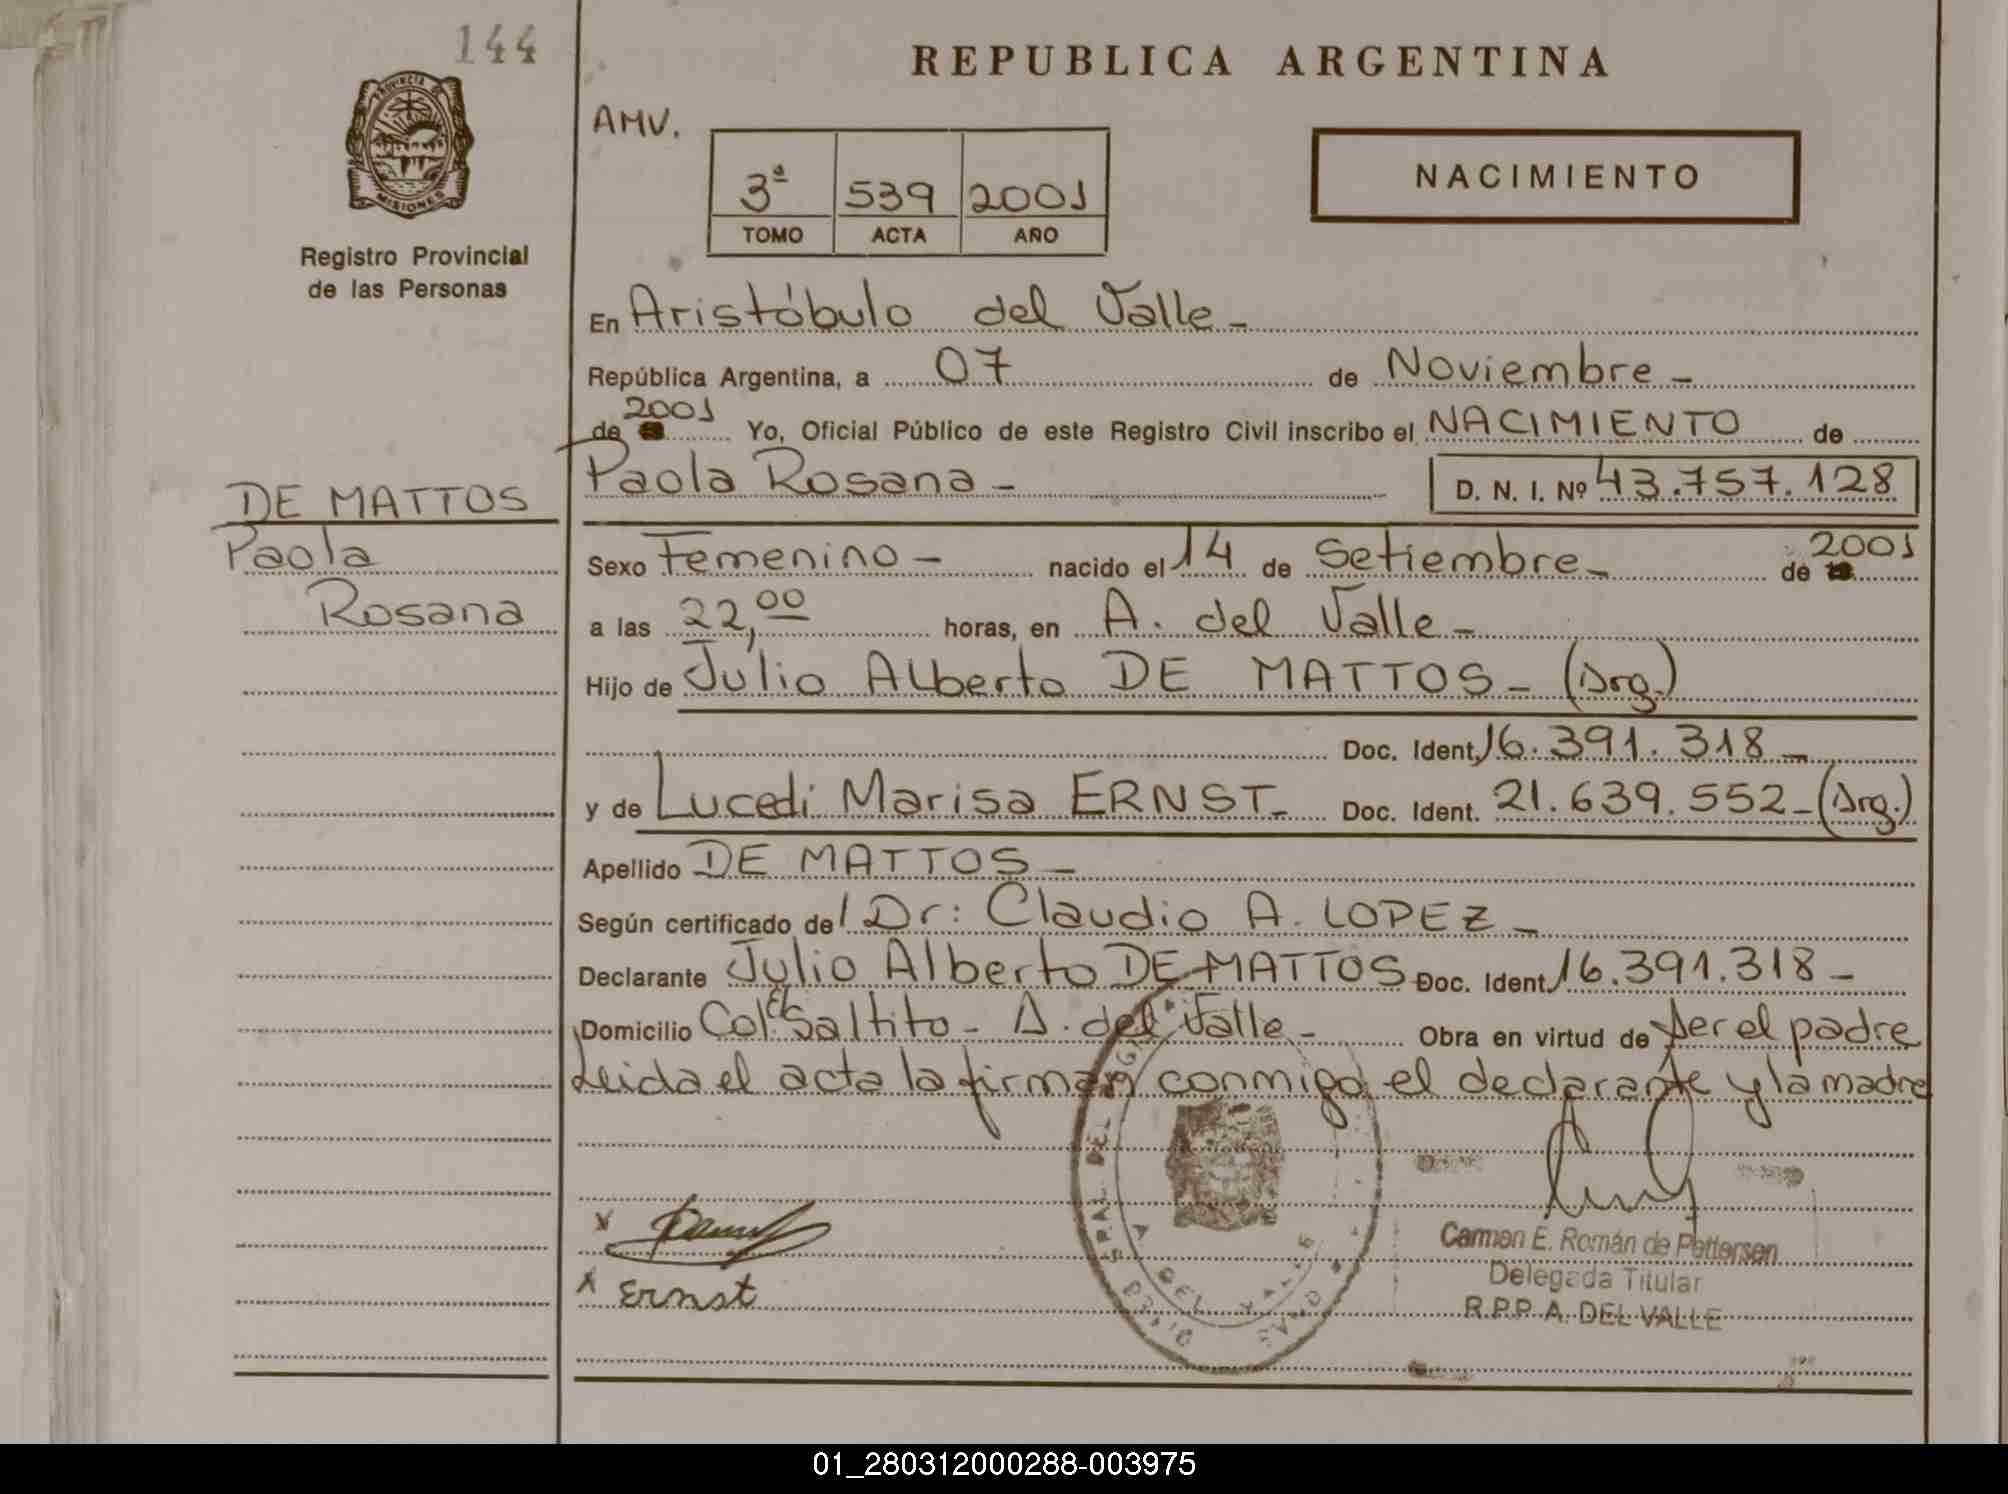 144
REPUBLICA ARGENTINA
AMV.
3ª 539 2001
TOMO ACTA AÑO
NACIMIENTO
PROVINCIA DE
MISIONES
Registro Provincial
de las Personas
En Aristóbulo del Valle -
República Argentina, a 07 de Noviembre -
de 2001 Yo, Oficial Público de este Registro Civil inscribo el NACIMIENTO de
Paola Rosana - D. N. I. Nº 43.757.128
DE MATTOS
Paola
Rosana
Sexo Femenino - nacido el 14 de Setiembre - de 2001
a las 22,00 horas, en A. del Valle -
Hijo de Julio Alberto DE MATTOS - (Arg.)
Doc. Ident. 16.391.318 -
y de Lucedi Marisa ERNST - Doc. Ident. 21.639.552 - (Arg.)
Apellido DE MATTOS -
Según certificado del Dr: Claudio A. LOPEZ -
Declarante Julio Alberto DE MATTOS Doc. Ident. 16.391.318 -
Domicilio Col. El Saltito - A. del Valle - Obra en virtud de ser el padre
Leida el acta la firman conmigo el declarante y la madre
x
x Ernst
Carmen E. Román de Pettersen
Delegada Titular
R.P.P. A. DEL VALLE
01_280312000288-003975